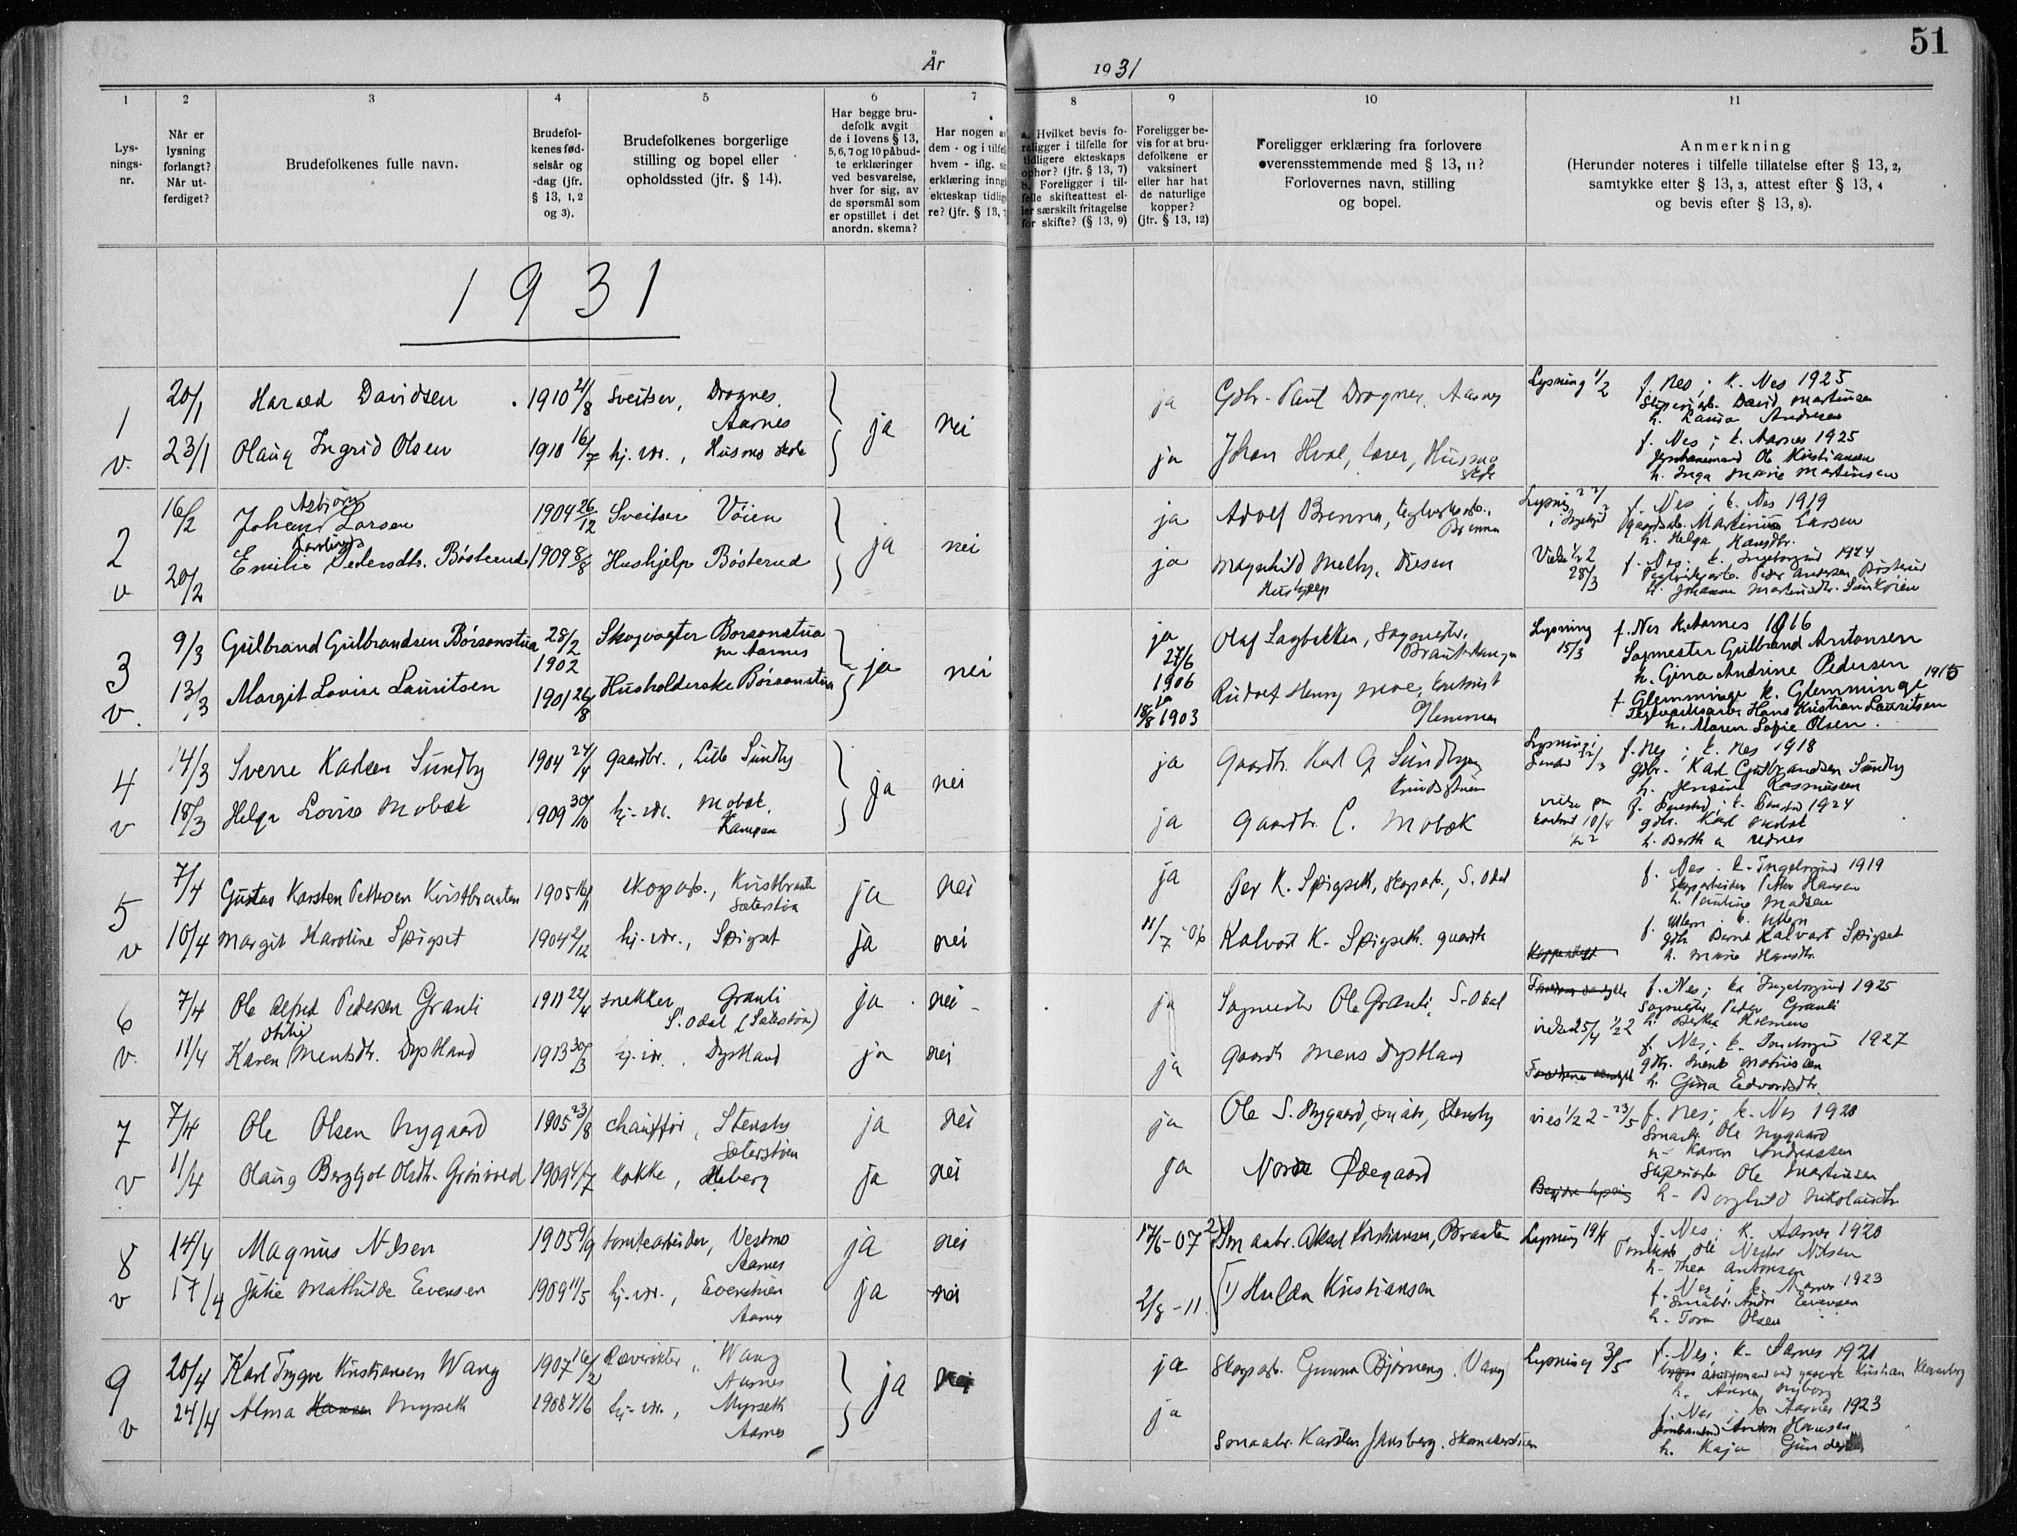 51
År 1931
1 2 3 4 5 6 7 8 9 10 11
Lys-
nings-
nr.
Når er
lysning
forlangt?
Når ut-
ferdiget?
Brudefolkenes fulle navn.
Brudefol-
kenes fød-
selsår og
-dag (jfr.
§ 13, 1, 2
og 3).
Brudefolkenes borgerlige
stilling og bopel eller
opholdssted (jfr. § 14).
Har begge bru-
defolk avgit
de i lovens § 13,
5, 6, 7 og 10 påbud-
te erklæringer
ved besvarelse,
hver for sig, av
de spørsmål som
er opstillet i det
anordn. skema?
Har nogen av
dem - og i tilfel
hvem - iflg. si
erklæring inngå
ekteskap tidlige
re? (jfr. § 13, 7
a. Hvilket bevis fo-
religger i tilfelle for
tidligere ekteskaps
ophør? (jfr. § 13, 7)
b. Foreligger i til-
felle skifteattest el-
ler særskilt fritagelse
for skifte? (§ 13, 9)
Foreligger be-
vis for at bru-
defolkene er
vaksinert
eller har hat
de naturlige
kopper?
(jfr. § 13, 12)
Foreligger erklæring fra forlovere
overensstemmende med § 13, 11?
Forlovernes navn, stilling
og bopel.
Anmerkning
(Herunder noteres i tilfelle tillatelse efter § 13, 2,
samtykke efter § 13, 3, attest efter § 13, 4
og bevis efter § 13, 8).
1931
1
v.
20/1 Harald Davidsen 1910 21/8 Sveitser, Drognes, Aarnes
23/1 Olaug Ingrid Olsen 1910 16/7 hj. vr., Husmo skole
ja nei
ja Gdbr. Paul Drognes, Aarnes
ja Johan Hval, lærer, Husmo skole
Lysning 1/2
f. Nes; k. Nes 1925
David Martinsen
h. Andresen
f. Nes; k. Aarnes 1925
Jernbanemand Ole Kristiansen
h. Inga Marie Martinsen
2
v
16/2 Johan Asbjørn Larsen 1904 26/12 Sveitser Vöien
20/2 Emilie Pedersdtr. Bösterud 1909 8/8 Hushjelp Bösterud
ja nei
ja Adolf Brenna, teglverksarb. Brenna
ja Magnhild Melby, Disen
Hushjelp
Lysning 22/2
Vielse 1/2 2
28/3
f. Nes; k. Nes 1919
Gaardsarb. Martinius Larsen
h. Helga Hansdtr.
f. Nes; k. Ingeborgrud 1924
Teglverksarb. Peder Andersen Bösterud
h. Johanne Martinsdtr.
3
v.
9/3 Gulbrand Gulbrandsen Börsonstua 28/2 1902 Skogvogter Borsonstua pr Aarnes
13/3 Margit Lovise Lauritsen 1901 26/8 Husholderske Börsonstua
ja nei
ja
27/6
1906
ja
18/8 1903
Olaf Sagbakken, Sagmester,
Rudolf Henry Moe,
Glemmen
Lysning
15/3
f. Nes k. Aarnes 1916
Sagmester Gulbrand Antonsen
h. Gina Andrine Pedersen
f. Glemminge k. Glemminge 1915
Teglverksarb. Hans Kristian Lauritsen
h. Maren Sofie Olsen.
4
v
14/3 Sverre Karlsen Sundby 1904 24/4 gaardbr., Lille Sundby
18/3 Helga Lovise Mobæk 1909 30/10 hj.-vr. Mobæk, Kampen
ja nei
ja Gaardbr. Karl G. Sundby
ja Gaardbr. C. Mobæk
Lysning
f. Nes; k. Nes 1918
gdbr. Karl Gulbrandsen Sundby
h. Jensine Rasmussen
k. 1924
gdbr. Karl Mobæk
h. Berth a
5
v
7/4 Gustav Karsten Pettersen Kvistbraaten 1905 16/11 skogsarb., Kvistbraaten Sæterstöa
10/4 Margit Karoline Spigset 1904 21/12 hj.-vr., Spigset
ja nei
ja nei
ja Per K. Spigseth, skogsarb., S. Odal
11/7 -06 Kalvart K. Spigseth. gaardbr.
f. Nes. k. Ingeborgrud 1919
Skogsarbeider Petter Hansen
h. Pauline Madsen
f. Ullern. k. Ullern
gdbr. Bernt Kalvart Spigset
h. Marie Hansdtr.
6
v.
7/4 Ole Alfred Pedersen Granli 1911 22/4 snekker, Granli S. Odal (Sæterstöa)
11/4 Karen Otilie Mentsdtr. Dystland 1913 30/3 hj. vr., Dystland
ja nei
ja nei
ja Sagmester Ole Granli, S. Odal
ja Gaardbr Mens Dystland
vielse 25/4 1/2 2
f. Nes; k. Ingeborgrud 1925
Sagmester Peder Granli
h. Berthe Holmens
f. Nes; k. Ingeborgrud 1927
h. Gina Edvardsdtr.
7
v
7/4 Ole Olsen Nygaard 1905 23/8 chauffør, Stensby Sæterstöen
11/4 Olaug Bergljot Olsdtr. Grönvold 1909 4/7 kokke, Heberg
ja nei
ja nei
ja Ole S. Nygaard, småbr, Stensby
ja Nora Ødegaard
vies 1/2 2 - 23/5
f. Nes; k. Nes 1920
Småbr. Ole Nygaard
h. Karen Andreassen
Ole Martinsen
h. Borghild Nikolaisdtr.
8
v
14/4 Magnus Nilsen 1905 9/9 tomtearbeider, Vestmo Aarnes
17/4 Julie Mathilde Evensen 1909 11/5 hj.-vr., Evenstuen Aarnes
ja nei
ja nei
17/6-07 2) Smaabr. Aksel Kristiansen, Braaten
2/8-11. 1) Hulda Kristiansen
Lysning 19/4
f. Nes; k. Aarnes 1920
Tomtearb. Ole Nestor Nilsen
h. Thea Antonsen
f. Nes; k. Aarnes 1923
Småbr. Andr. Evensen
h. Tora Olsen
9
v
20/4 Karl Trygve Kristiansen Wang 1907 16/2 Rævevokter, Wang Aarnes
24/4 Alma Hansen Myrseth 1908 4/6 hj.-vr., Myrseth Aarnes
ja nei
ja Skogsarb. Gunnar Björneng, Vang
ja
Smaabr. Karsten Jansberg,
Lysning 3/5
f. Nes; k. Aarnes 1921
h. Anna Nyborg
f. Nes; k. Aarnes 1923
Jernbanemd Anton Hansen
h. Kaja